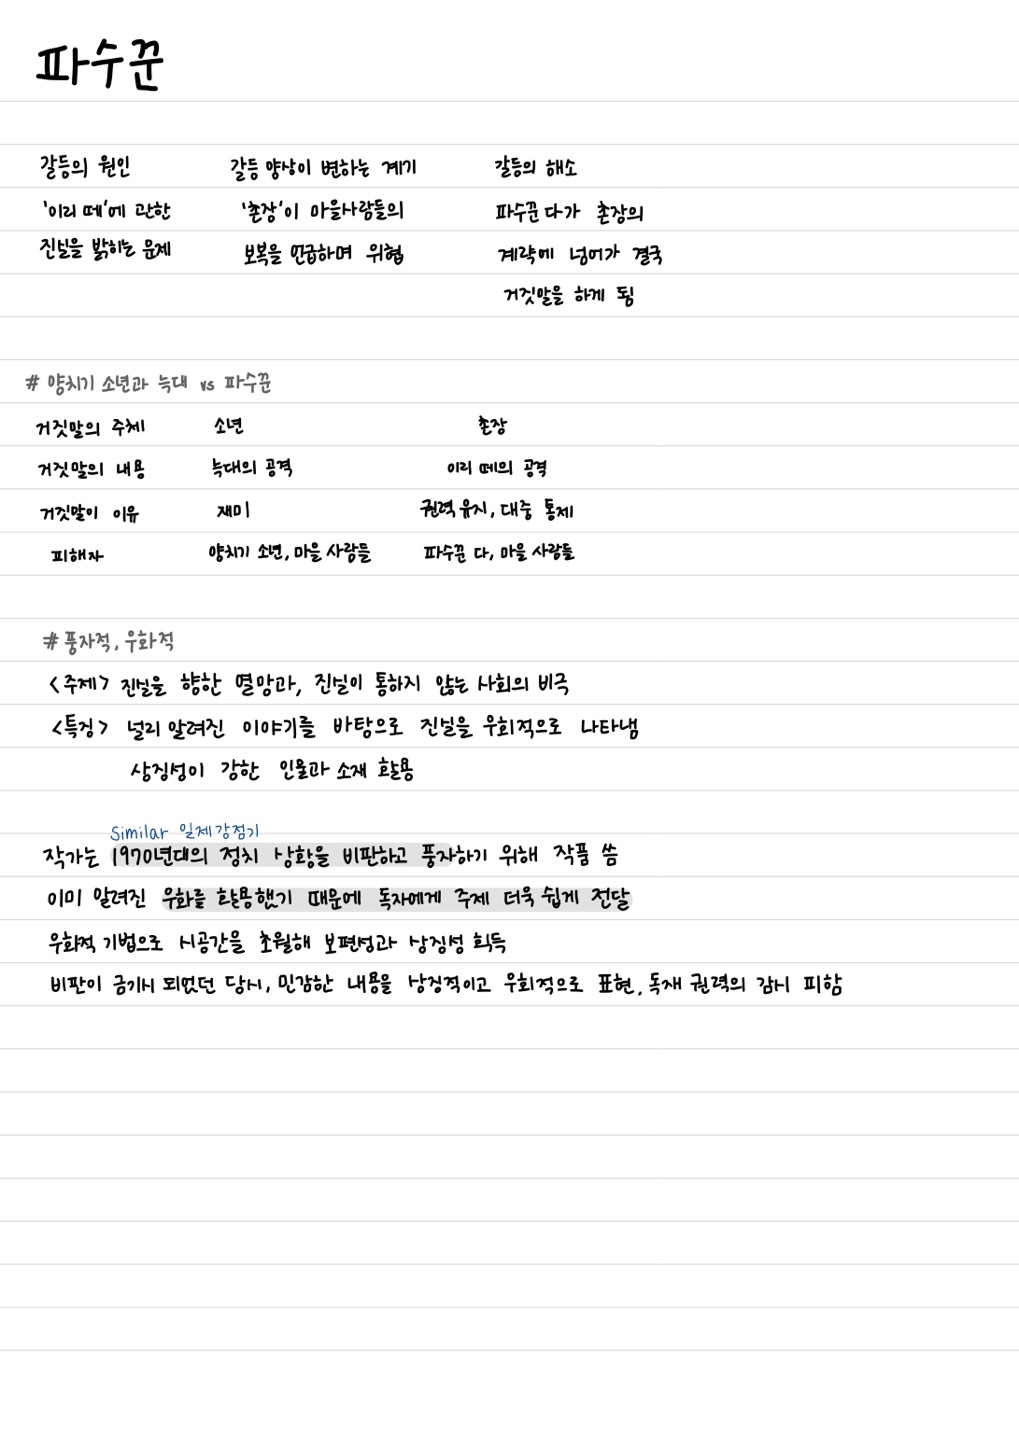 파수꾼
갈등의 원인 갈등 양상이 변하는 계기 갈등의 해소
'이리 떼'에 관한 '촌장'이 마을사람들의 파수꾼 다가 촌장의
진실을 밝히는 문제 보복을 언급하며 위협 계략에 넘어가 결국
거짓말을 하게 됨
# 양치기 소년과 늑대 vs 파수꾼
거짓말의 주체 소년 촌장
거짓말의 내용 늑대의 공격 이리 떼의 공격
거짓말이 이유 재미 권력 유지, 대중 통제
피해자 양치기 소년, 마을 사람들 파수꾼 다, 마을 사람들
# 풍자적, 우화적
<주제> 진실을 향한 열망과, 진실이 통하지 않는 사회의 비극
<특징> 널리 알려진 이야기를 바탕으로 진실을 우회적으로 나타냄
상징성이 강한 인물과 소재 활용
Similar 일제강점기
작가는 1970년대의 정치 상황을 비판하고 풍자하기 위해 작품 씀
이미 알려진 우화를 활용했기 때문에 독자에게 주제 더욱 쉽게 전달
우화적 기법으로 시공간을 초월해 보편성과 상징성 획득
비판이 금기시 되었던 당시, 민감한 내용을 상징적이고 우회적으로 표현, 독재 권력의 감시 피함